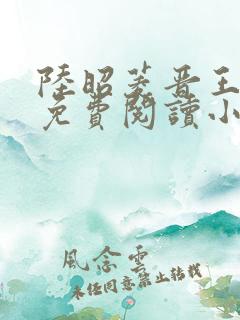 陸昭菱晉王
免費閱讀小
風念雲
未經同意禁止轉載